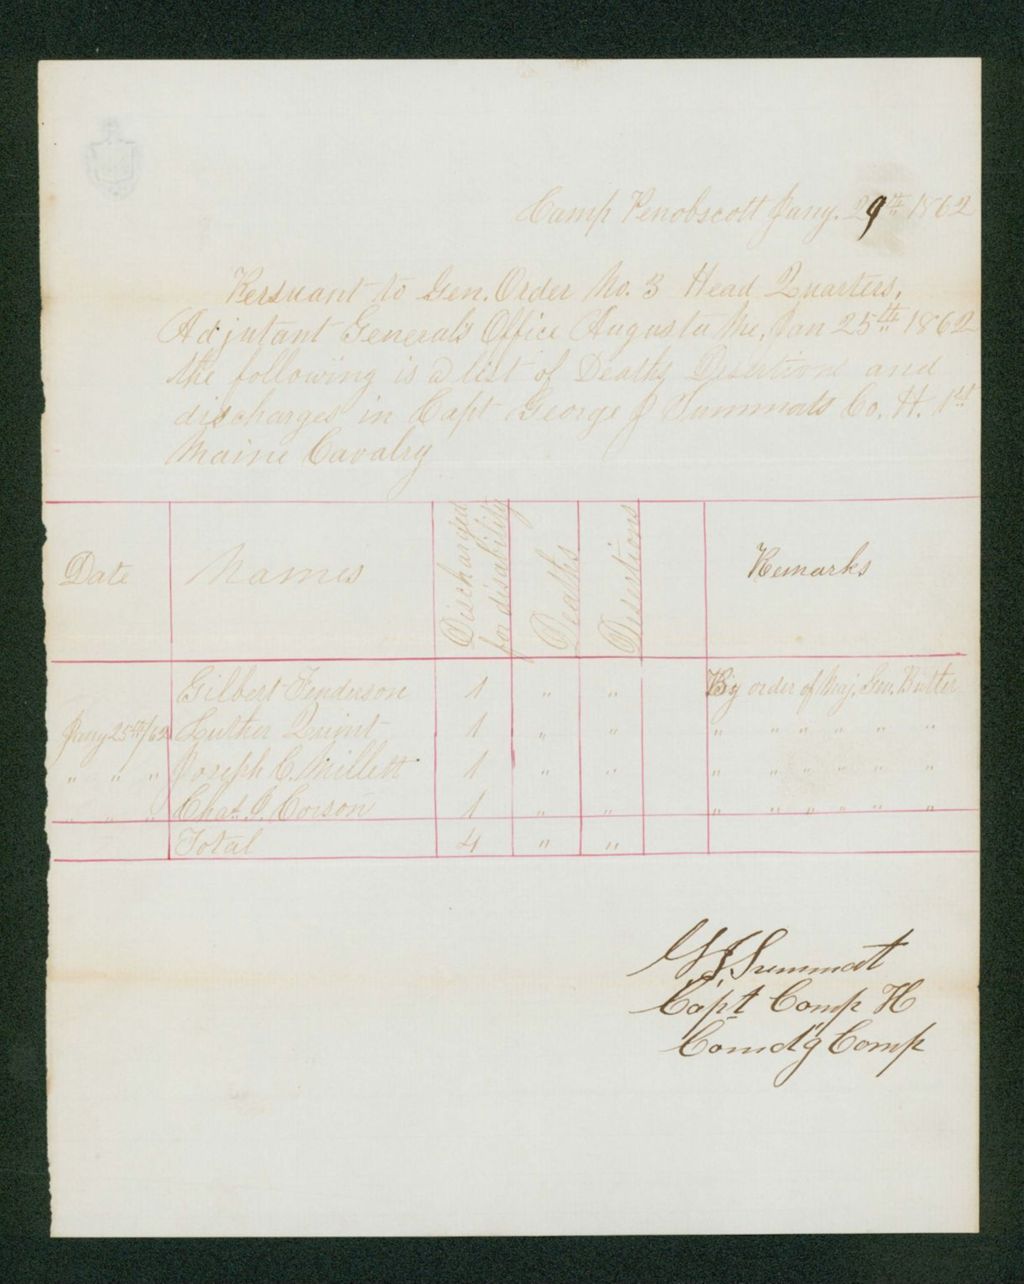 Camp Penobscott Jany. 29th 1862
Persuant to Gen. Order No. 3 Head Quarters,
Adjutant General's Office Augusta Me, Jan 25th 1862
the following is a list of Deaths Desertions and
discharges in Capt George J Summats Co. H. 1st
Maine Cavalry
Date Names Discharged for disability Deaths Desertions Remarks
Gilbert Fenderson 1 " " By order of Maj. Gen. Butler
Jany 25th/62 Luther Quint 1 " " " " " " " "
" " " Joseph C. Millett 1 " " " " " " " "
" " " Chas. J. Corson 1 " " " " " " " "
Total 4 " "
G J Summat
Capt Comp H
Comd'g Comp